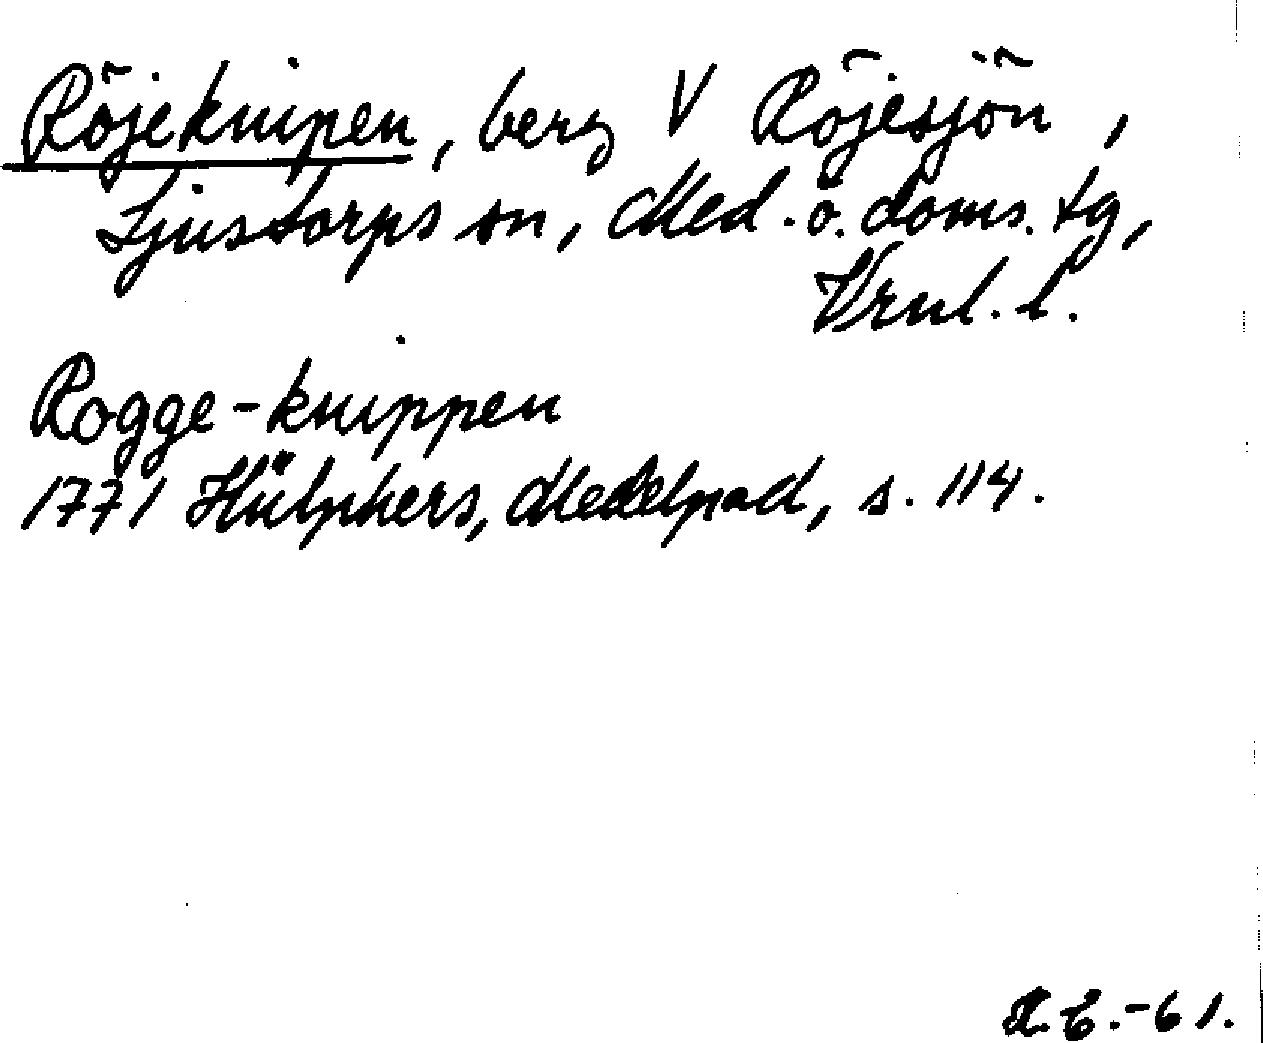 Röjeknipen, berg V Röjesjön,
Ljustorps sn, Med. ö. doms. tg,
Vrnl. l.
Rogge-knippen
1771 Hülphers, Medelpad, s. 114.
R.E.-61.